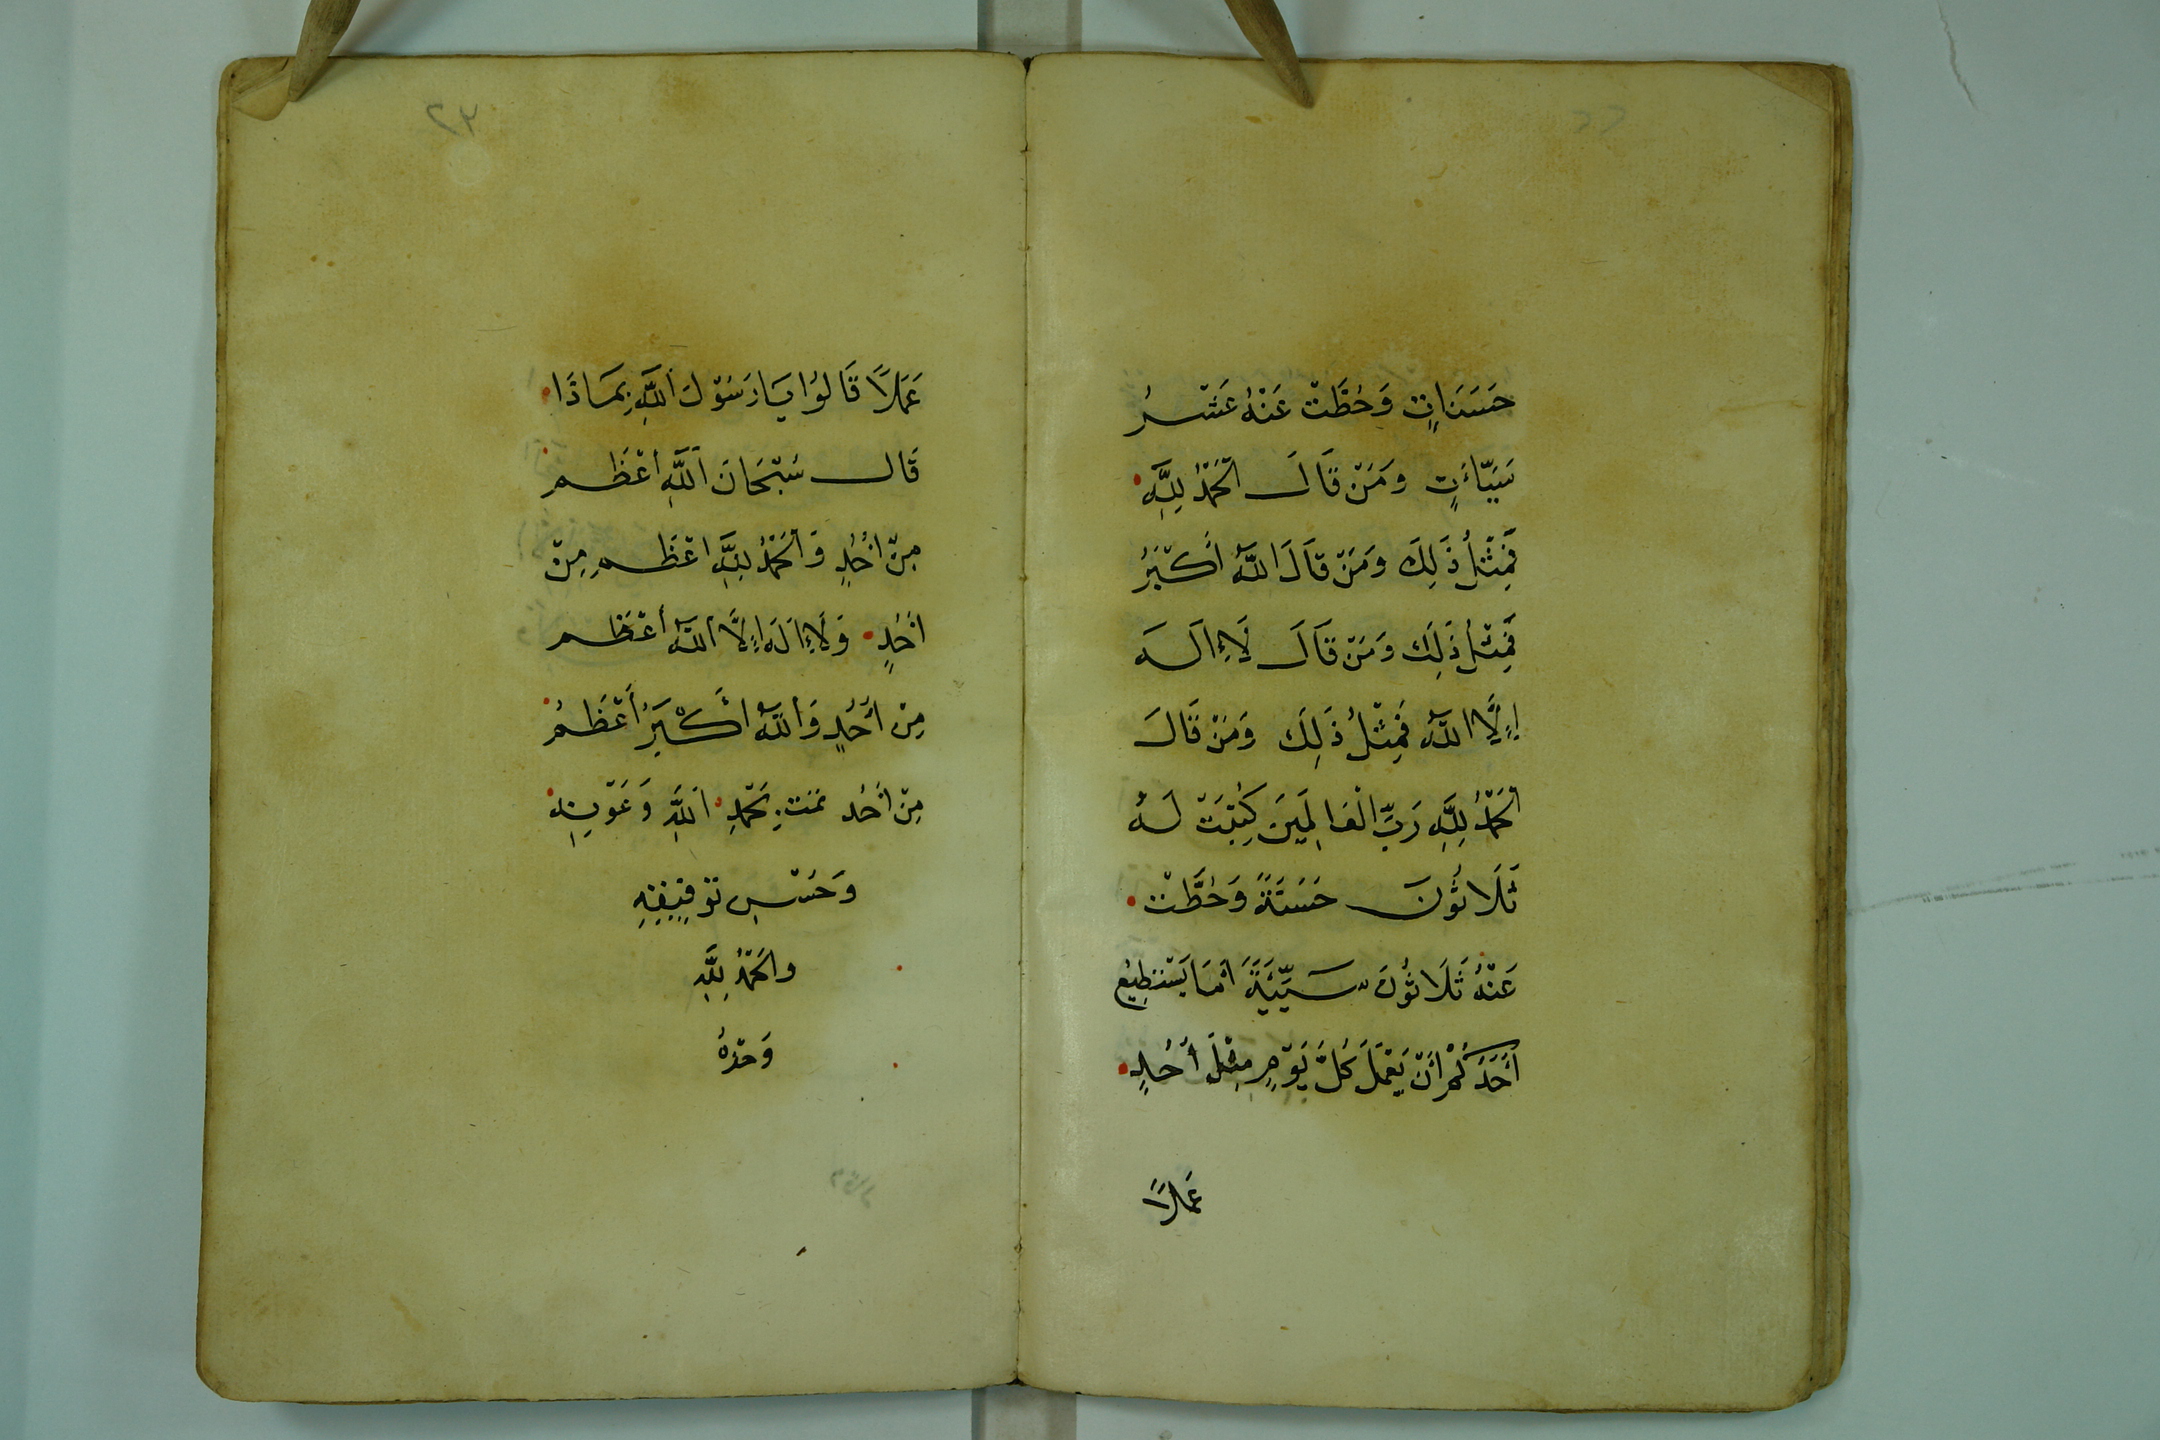 حَسَنَاتٍ وَحُطَّتْ عَنْهُ عَشْرُ
سَيِّاَءَتٍ وَمَنْ قَالَ الْحَمْدُ لِلَّهِ
فَمِثْلُ ذَلِكَ وَمَنْ قَالَ اللَّهُ أَكْبَرُ
فَمِثْلُ ذَلِكَ وَمَنْ قَالَ لَاءِالَهَ
إِلَّا اللَّهُ فَمِثْلُ ذَلِكَ وَمَنْ قَالَ
الْحَمْدُ لِلَّهِ رَبِّ الْعَالَمِينَ كُتِبَتْ لَهُ
ثَلَاثُونَ حَسَنَةً وَحُطَّتْ
عَنْهُ ثَلَاثُونَ سَيِّئَةً أَمَا يَسْتَطِيعُ
أَحَدُكُمْ أَنْ يَعْمَلَ كُلَّ يَوْمٍ مِثْلَ أُحُدٍ
عَمَلًا
٢٣
عَمَلًا قَالُوا يَا رَسُوْلَ اللَّهِ بِمَاذَا
قَالَ سُبْحَانَ اللَّهِ أَعْظَم
مِنْ أُحُدٍ وَالْحَمْدُ لِلَّهِ اعْظَمِ مِنْ
اُحُدٍ وَلَاءِالَهَ اِلَّا اللَّهُ أَعْظَم
مِنْ أُحُدٍ وَاللَّهُ اكْبَرُ أَعْظَمُ
مِنْ أُحُد تمت بِحَمْدِ اللَّهِ وَعَوْنِهِ
وَحُسْنِ تَوْفِيقِهِ
والحَمْدُ لِلَّهِ
وَحْدَهُ